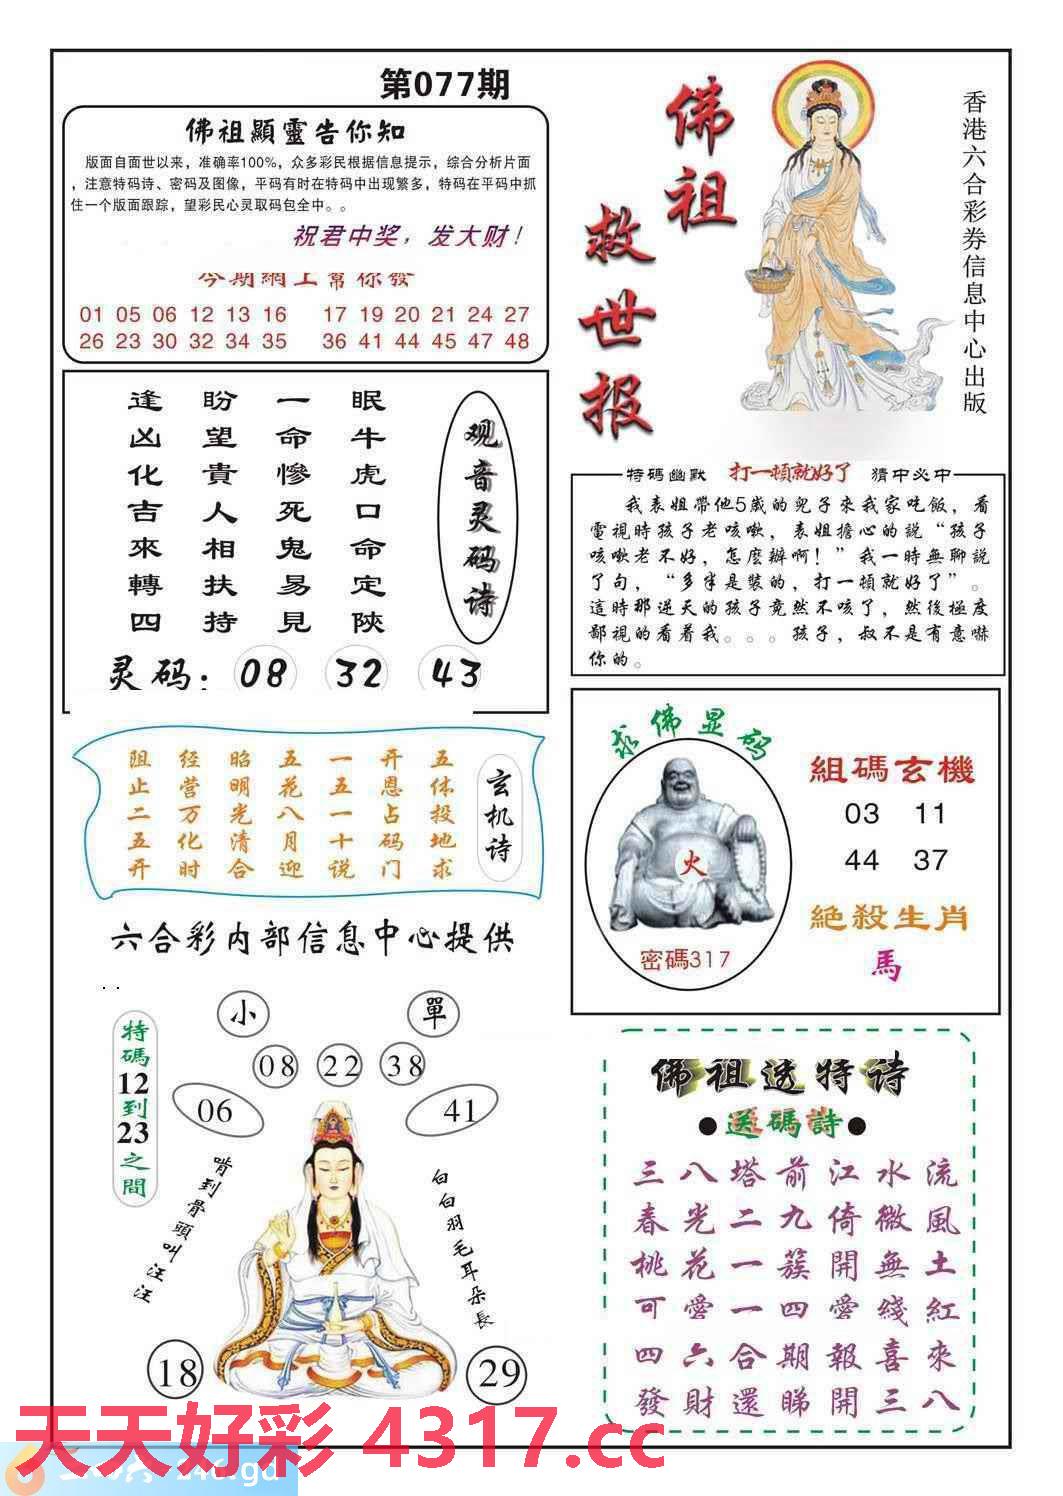 第077期
佛祖顯靈告你知
版面自面世以来，准确率100%，众多彩民根据信息提示，综合分析片面
，注意特码诗、密码及图像，平码有时在特码中出现繁多，特码在平码中抓
住一个版面跟踪，望彩民心灵取码包全中。。
祝君中奖，发大财！
今期網上幫你發
01 05 06 12 13 16 17 19 20 21 24 27
26 23 30 32 34 35 36 41 44 45 47 48
佛祖
救世报
香港六合彩券信息中心出版
观音灵码诗
眠牛虎口命定陝
一命慘死鬼易見
盼望貴人相扶持
逢凶化吉來轉四
灵码：08 32 43
特碼幽默 打一頓就好了 猜中必中
我表姐帶他5歲的兒子來我家吃飯，看
電視時孩子老咳嗽，表姐擔心的說“孩子
咳嗽老不好，怎麼辦啊！”我一時無聊說
了句，“多半是裝的，打一頓就好了”。
這時那逆天的孩子竟然不咳了，然後極度
鄙視的看着我。。。孩子，叔不是有意嚇
你的。
玄机诗
五体投地求
开恩占码门
一五一十说
五花八月迎
昭明光清合
经营万化时
阻止二五开
求佛显码
火
密碼317
組碼玄機
03 11
44 37
絕殺生肖
馬
六合彩内部信息中心提供
特碼12到23之間
小 單
08 22 38
06 41
啃到骨頭叫汪汪
白白羽毛耳朵長
18 29
佛祖透特诗
●送碼詩●
三八塔前江水流
春光二九倚微風
桃花一簇開無土
可愛一四愛綫紅
四六合期報喜來
發財還睇開三八
天天好彩 4317.cc
246.gd